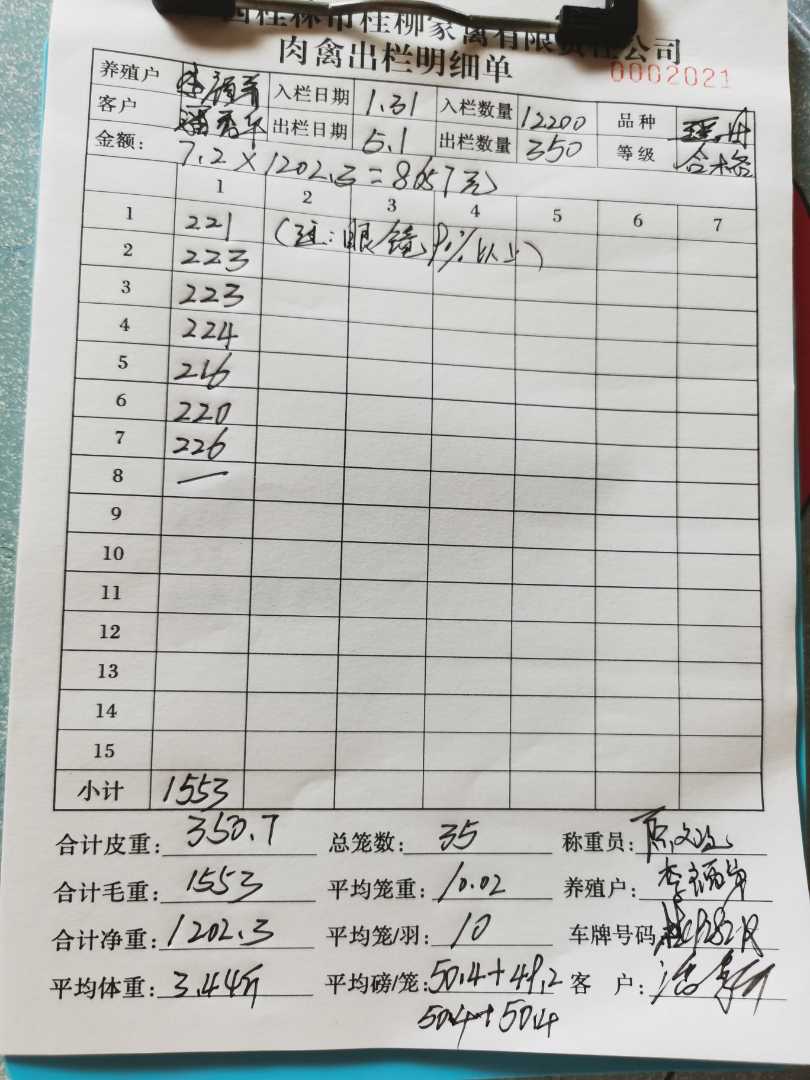 桂林市桂柳家禽有限责任公司
肉禽出栏明细单
0002021
养殖户 入栏日期 1.31 入栏数量 12200 品种
客户 出栏日期 5.1 出栏数量 350 等级 合格
金额: 7.2×1202.3=8657元
1 2 3 4 5 6 7
1 221 (注:眼镜90%以上)
2 223
3 223
4 224
5 216
6 220
7 226
8 —
9
10
11
12
13
14
15
小计 1553
合计皮重: 350.7 总笼数: 35 称重员:
合计毛重: 1553 平均笼重: 10.02 养殖户:
合计净重: 1202.3 平均笼/羽: 10 车牌号码:
平均体重: 3.44斤 平均磅/笼: 50.4+49.2 客 户:
50.4+50.4